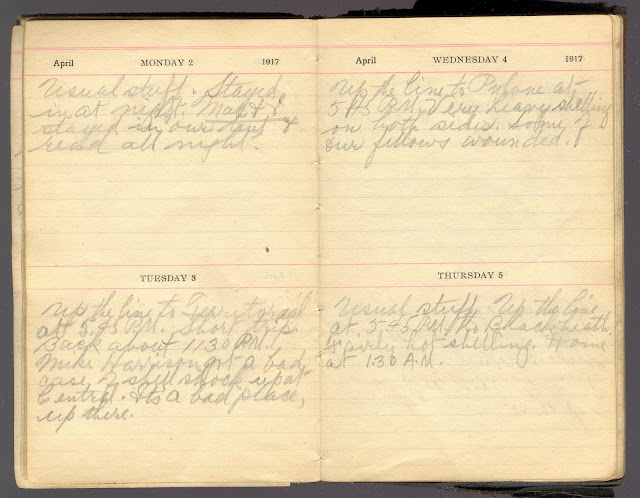 April MONDAY 2 1917
Usual stuff. Stayed
in at night. Mac & I
stayed in our tent &
read all night.
TUESDAY 3
Up the line to Territorial
at 5.45 P.M. Short trip.
Back about 11.30 P.M.
Mike Harrison got a bad
case of shell shock up at
Central. Its a bad place,
up there.
April WEDNESDAY 4 1917
Up the line to at
5.45 P.M. Very heavy shelling
on both sides. Some of
our fellows wounded.
THURSDAY 5
Usual stuff. Up the line
at 5.45 P.M. To Blackheath.
Fairly hot shelling. Home
at 1.30 A.M.